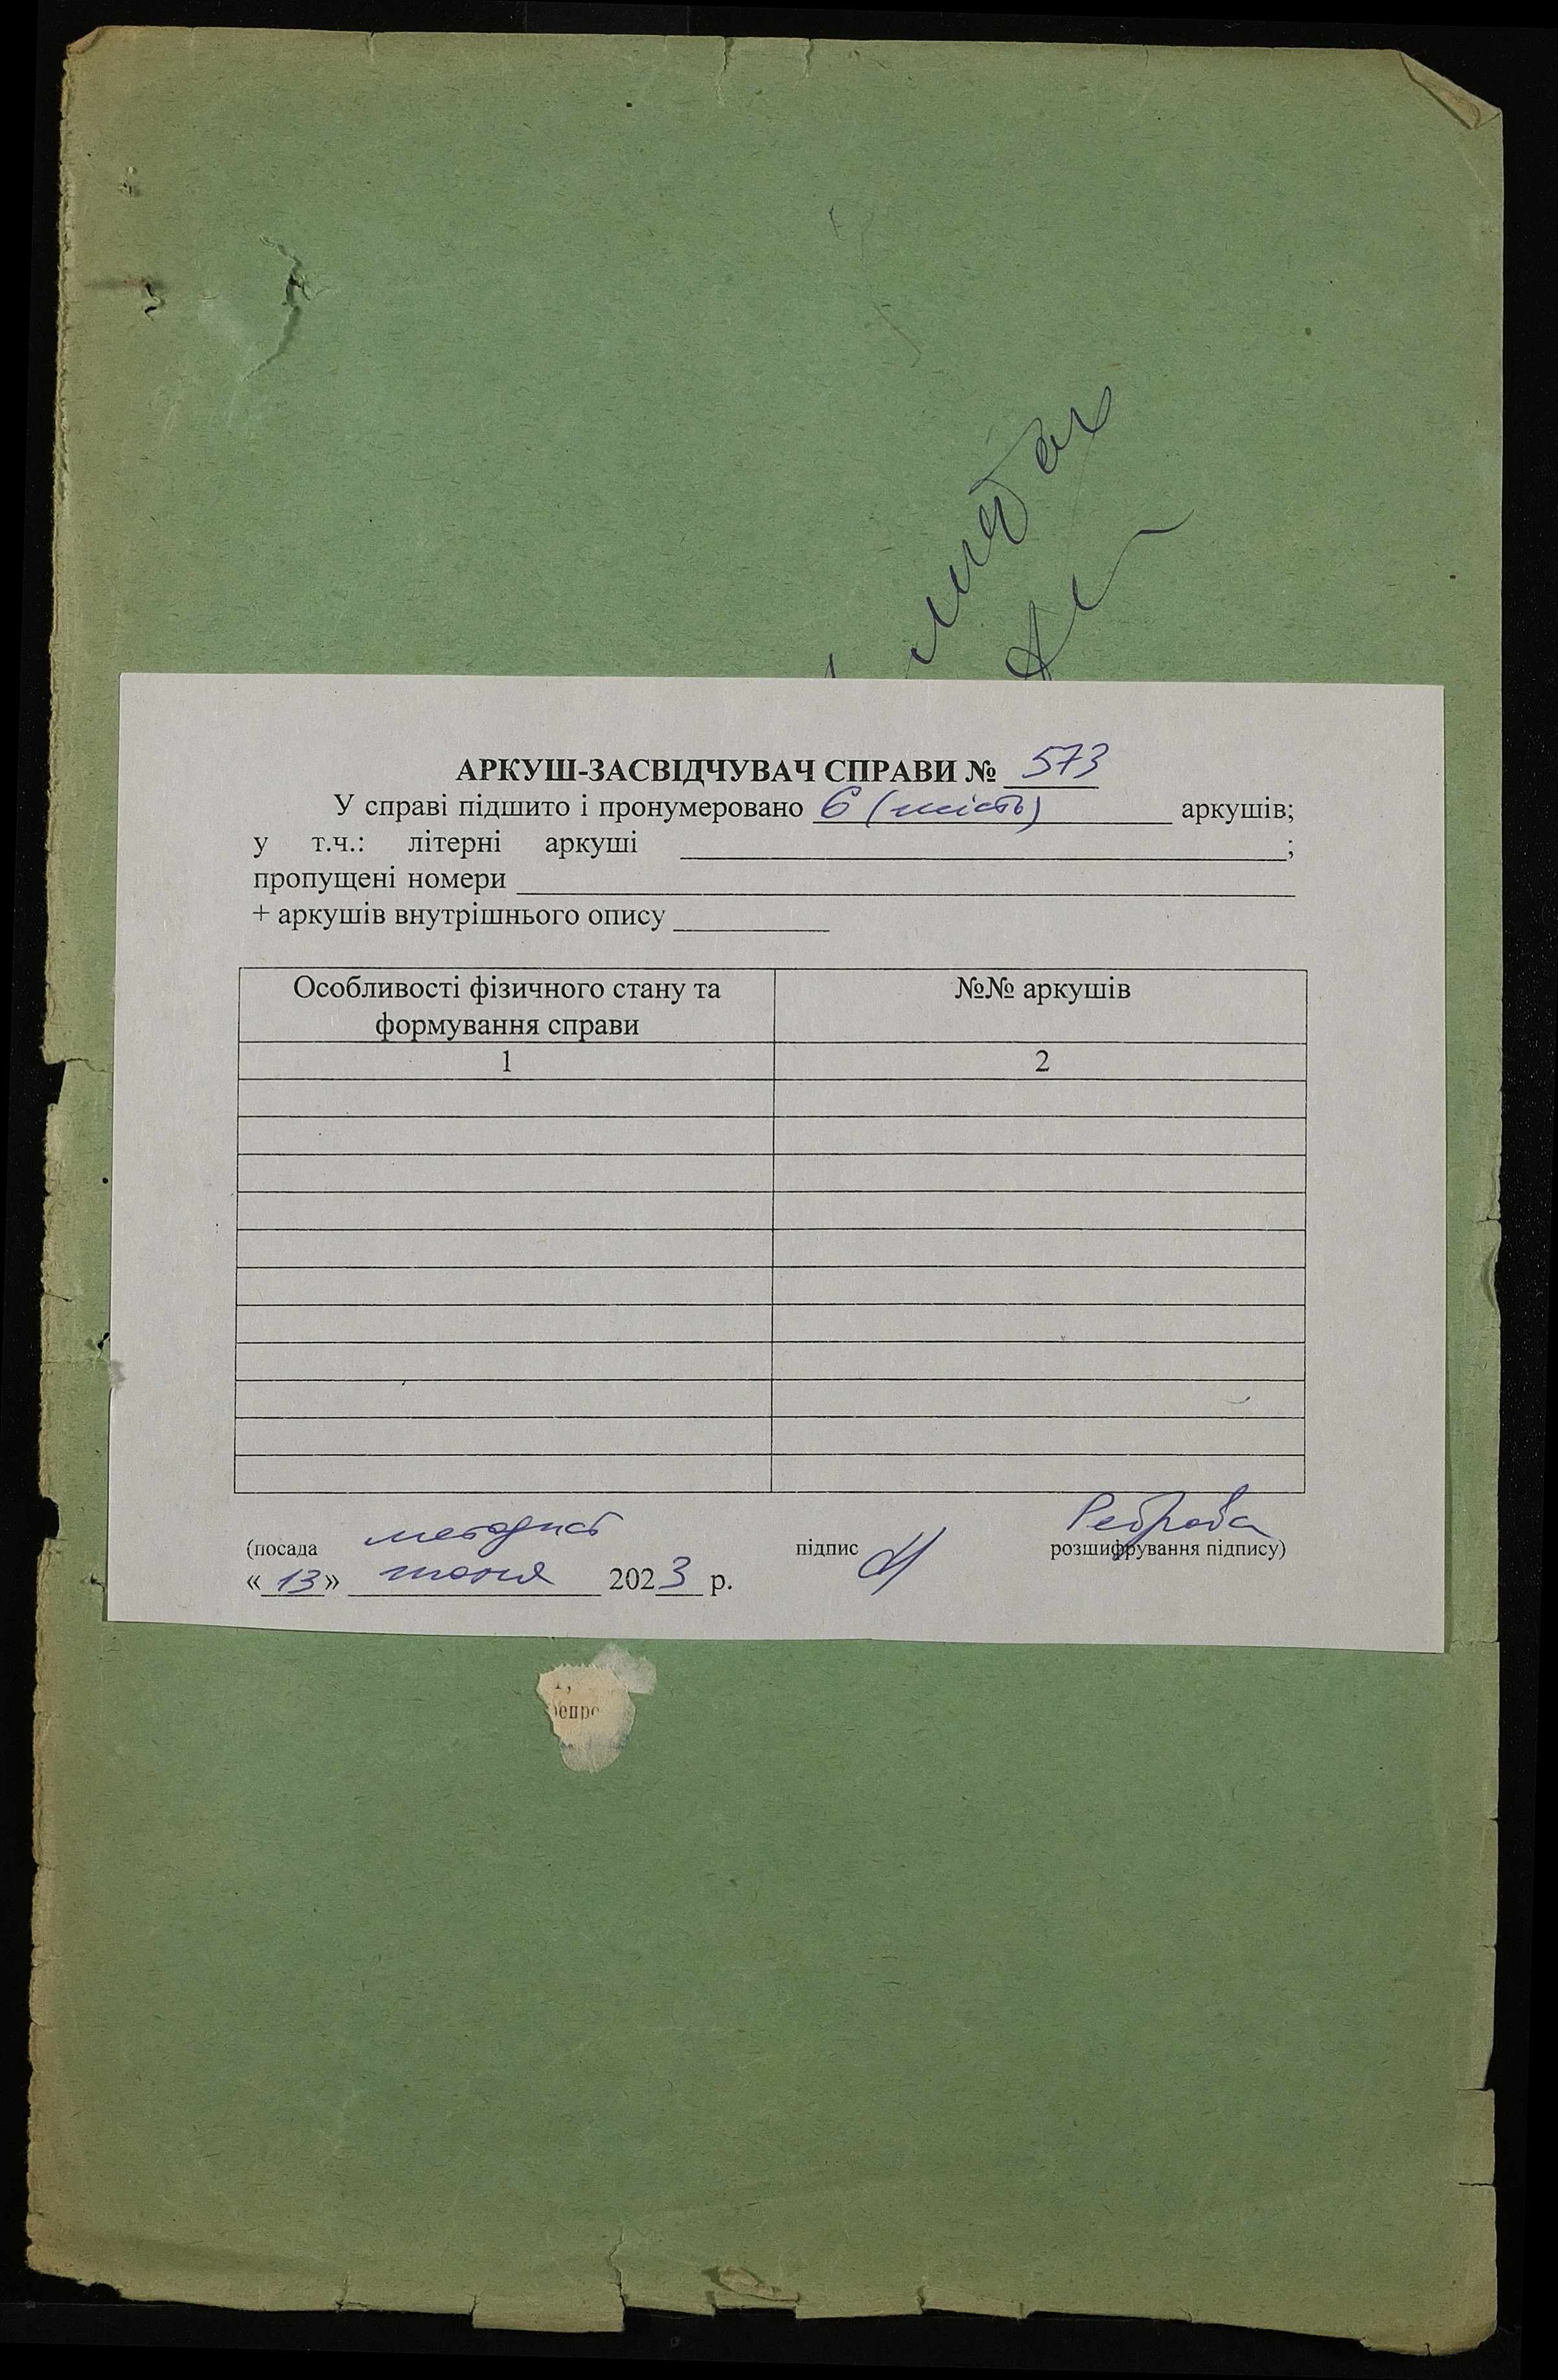 АРКУШ-ЗАСВІДЧУВАЧ СПРАВИ № 573
У справі підшито і пронумеровано 6 (шість) аркушів;
у т.ч.: літерні аркуші ;
пропущені номери
+ аркушів внутрішнього опису
Особливості фізичного стану та
формування справи
№№ аркушів
1 2
методист Реброва
(посада підпис розшифрування підпису)
«13» 2023 р.